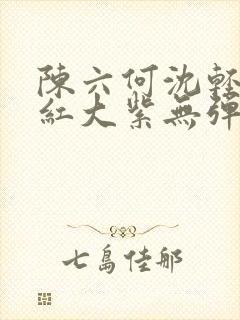 陳六何沈輕
紅大紫無彈
七島佳那